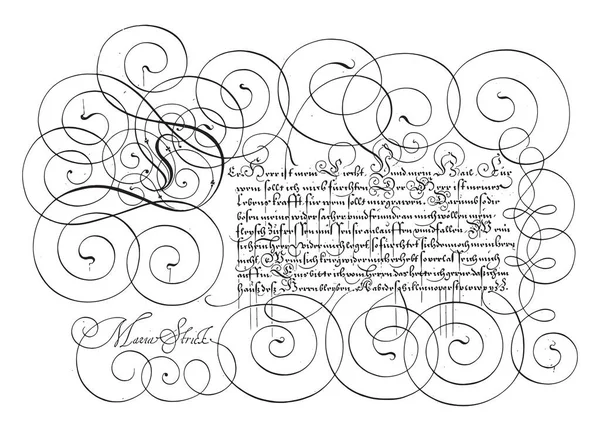 DEr Herr ist mein Liecht. Vnnd mein Hail. Für
wem sollt ich mich fürchten. Der Herr ist meines
lebens krafft, für wem sollt mir grawen. Darumb so die
bösen meine widersacher vnnd feunde an mich wöllen mein
fleysch zu fressen müssen sie anlauffen vnnd fallen. Wenn
sich ein heer wider mich leget, so fürchtet sich dennoch mein hertz
nicht. Wenn sich krieg wider mich erhebt so verlas ich mich
auff in. Eins bitte ich vom herren das hette ich gerne das ich im
hauß deß Herrn bleyben.
Maria Strick